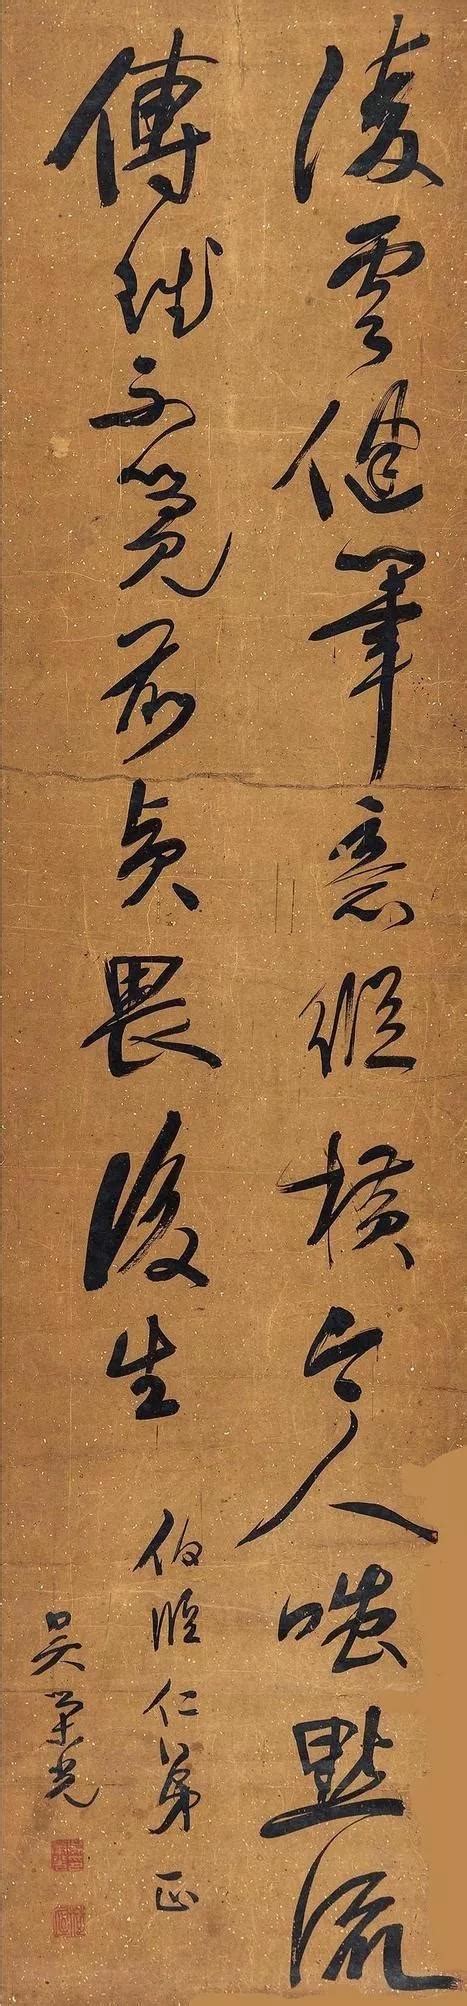 淩雲健筆意縱橫今人嗤點流
傳賦不覺前賢畏後生
伯仁弟正
吳榮光